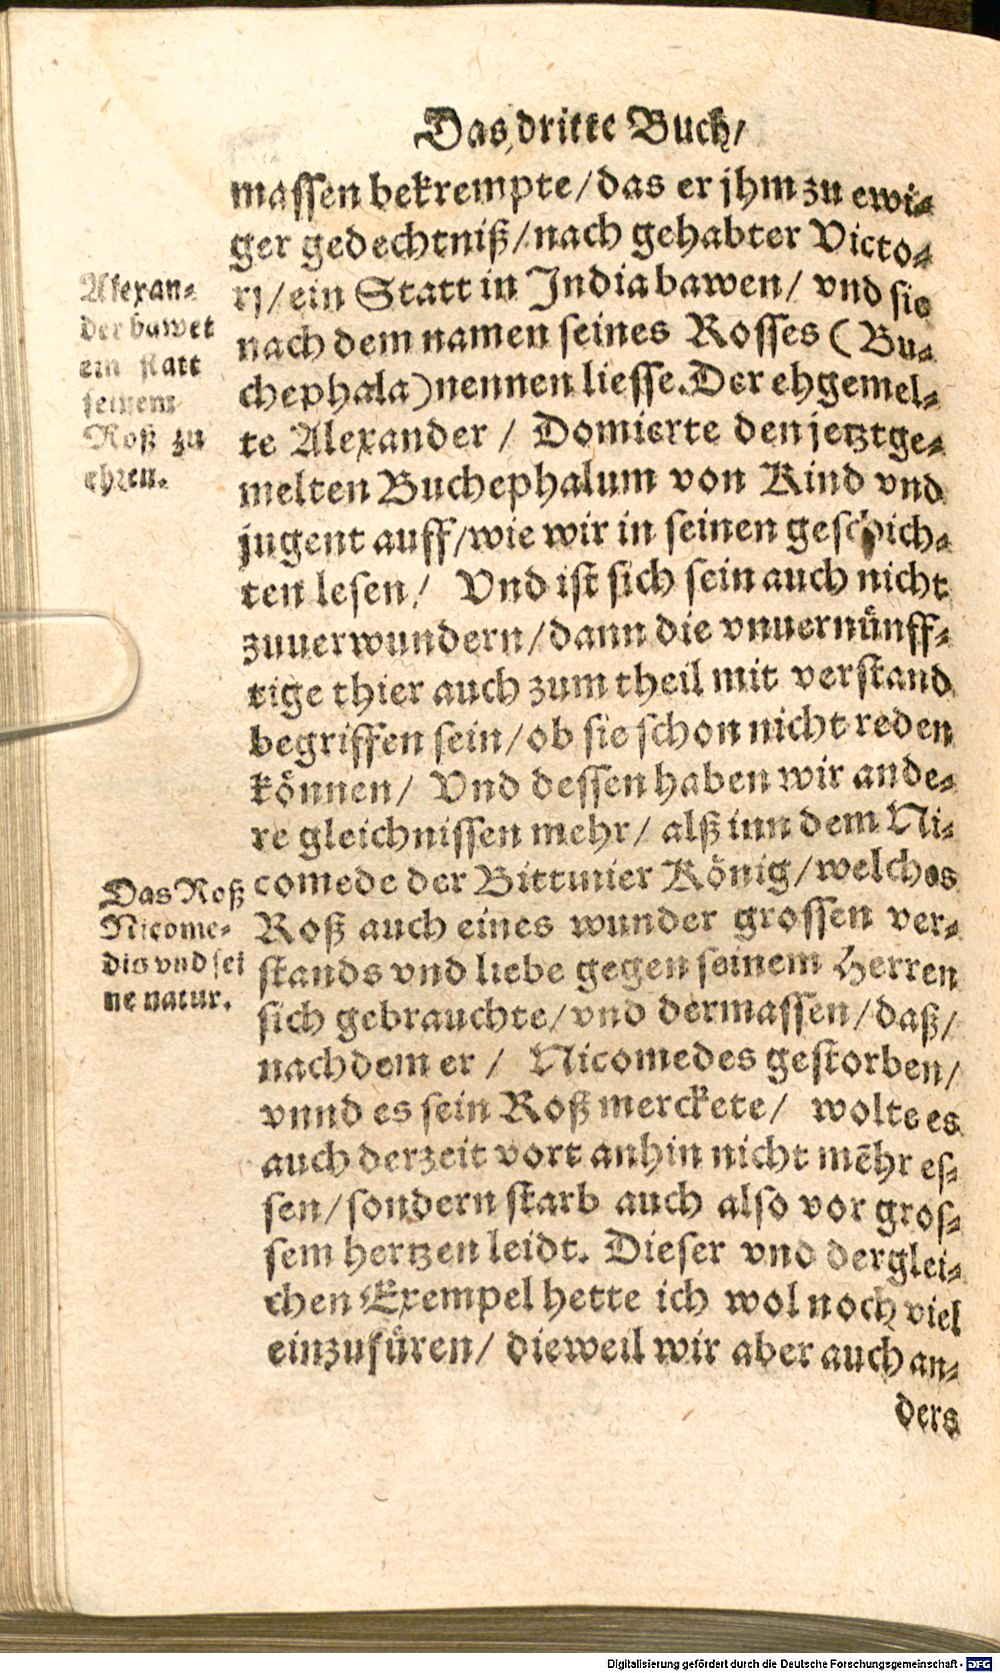 Das dritte Buch/
massen bekrempte/das er jhm zu ewi-
ger gedechtniß/nach gehabter Victo-
rj/ein Statt in India bawen/ vnd sie
nach dem namen seines Rosses (Bu-
chephala)nennen liesse.Der ehgemel-
te Alexander / Domierte den jetztge-
melten Buchephalum von Kind vnd
jugent auff/wie wir in seinen geschich-
ten lesen/ Vnd ist sich sein auch nicht
zuuerwundern/dann die vnuernünff-
tige thier auch zum theil mit verstand
begriffen sein/ob sie schon nicht reden
können/ Vnd dessen haben wir ande-
re gleichnissen mehr/ alß inn dem Ni-
comede der Bittinier König/welches
Roß auch eines wunder grossen ver-
stands vnd liebe gegen seinem Herren
sich gebrauchte/vnd dermassen/daß/
nachdem er / Nicomedes gestorben/
vnnd es sein Roß merckete/ wolte es
auch derzeit vort anhin nicht mẽhr es-
sen/sondern starb auch also vor gros-
sem hertzen leidt. Dieser vnd derglei-
chen Exempel hette ich wol noch viel
einzufüren/ dieweil wir aber auch an-
ders
Alexan-
der bawet
ein statt
seinem
Roß zu
ehren.
Das Roß
Nicome-
dis vnd sei
ne natur.
Digitalisierung gefördert durch die Deutsche Forschungsgemeinschaft - DFG